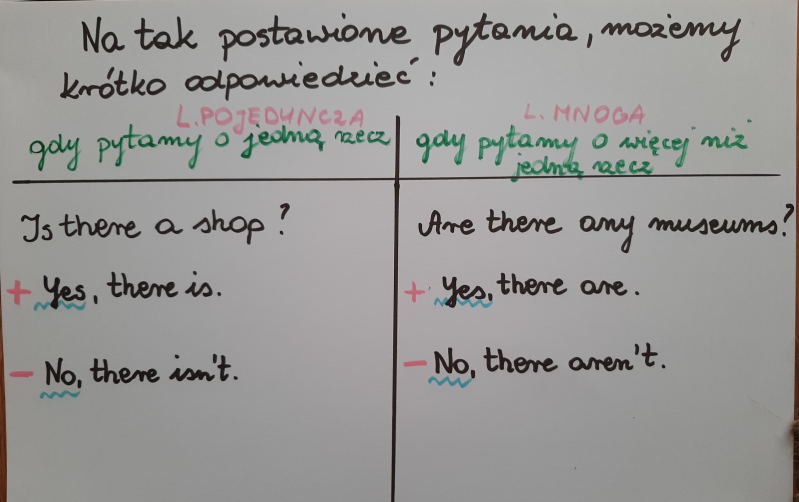 Na tak postawione pytania, możemy
krótko odpowiedzieć:
L. POJEDYNCZA
gdy pytamy o jedną rzecz
Is there a shop?
+ Yes, there is.
- No, there isn't.
L. MNOGA
gdy pytamy o więcej niż
jedną rzecz
Are there any museums?
+ Yes, there are.
- No, there aren't.